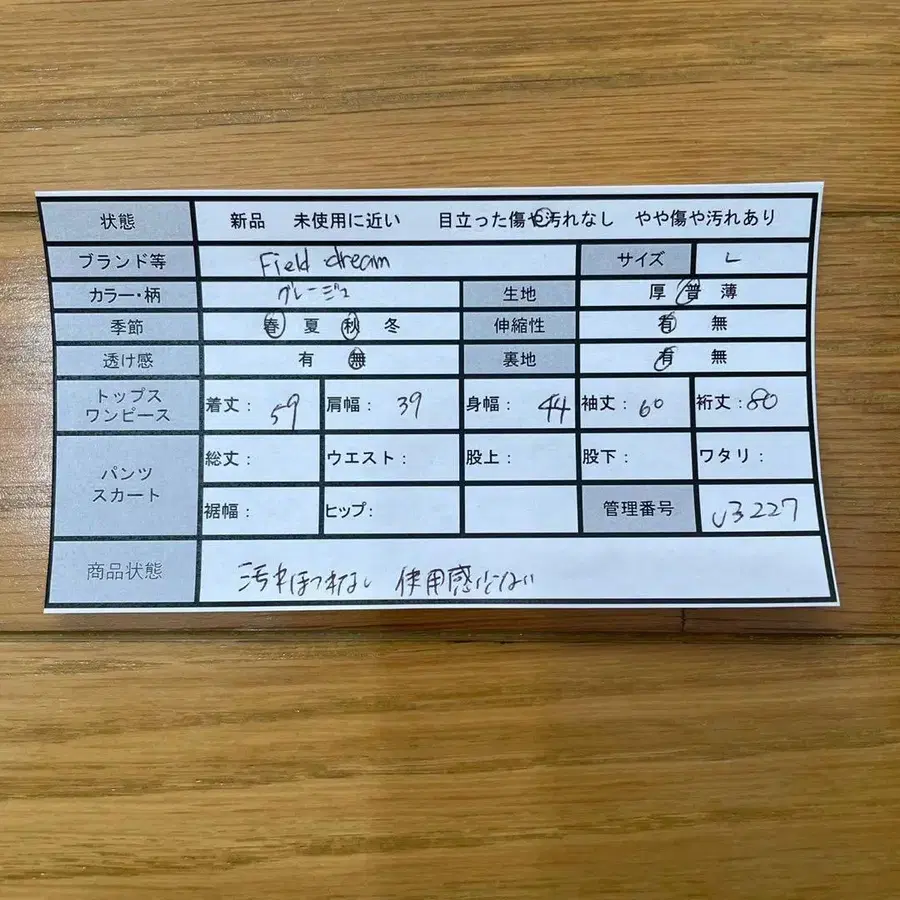 状態 新品 未使用に近い 目立った傷や汚れなし やや傷や汚れあり
ブランド等 Field dream サイズ L
カラー・柄 グレージュ 生地 厚 普 薄
季節 春 夏 秋 冬 伸縮性 有 無
透け感 有 無 裏地 有 無
トップス ワンピース 着丈: 59 肩幅: 39 身幅: 44 袖丈: 60 裄丈: 80
パンツ スカート 総丈: ウエスト: 股上: 股下: ワタリ:
裾幅: ヒップ: 管理番号 227
商品状態 汚れほつれなし 使用感少ない